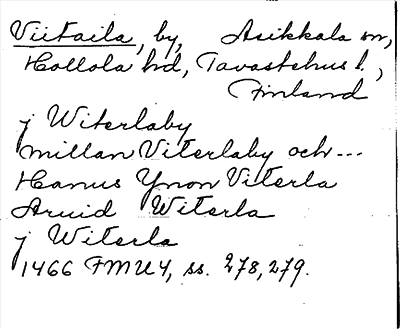 Viitaila, by, Asikkala sn,
Hollola hd, Tavastehus l.,
Finland
j Witerlaby
millan Viterlaby och---
Hanus Ynon Viterla
Aruid Witerla
j Witerla
1466 FMU4, ss. 278,279.